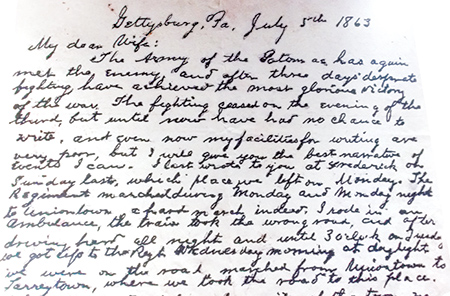 Gettysburg, Pa, July 5th 1863
My dear Wife:
The Army of the Potomac has again
met the enemy, and after three days desperate
fighting have achieved the most glorious victory
of the war. The fighting ceased on the evening of the
third, but until now have had no chance to
write, and even now my facilities for writing are
very poor, but I will give you the best narrative of
events I can. I last wrote to you at Frederick on
Sunday last, which place we left on Monday. The
Regiment marched during Monday and Monday night
to Uniontown a hard march indeed. I rode in an
ambulance, the train took the wrong road and after
driving hard all night and until 3 o'clk on
we got up to the Regt. Wednesday morning at daylight
we were on the road, marched from Uniontown to
Tarreytown, where we took the road to this place.